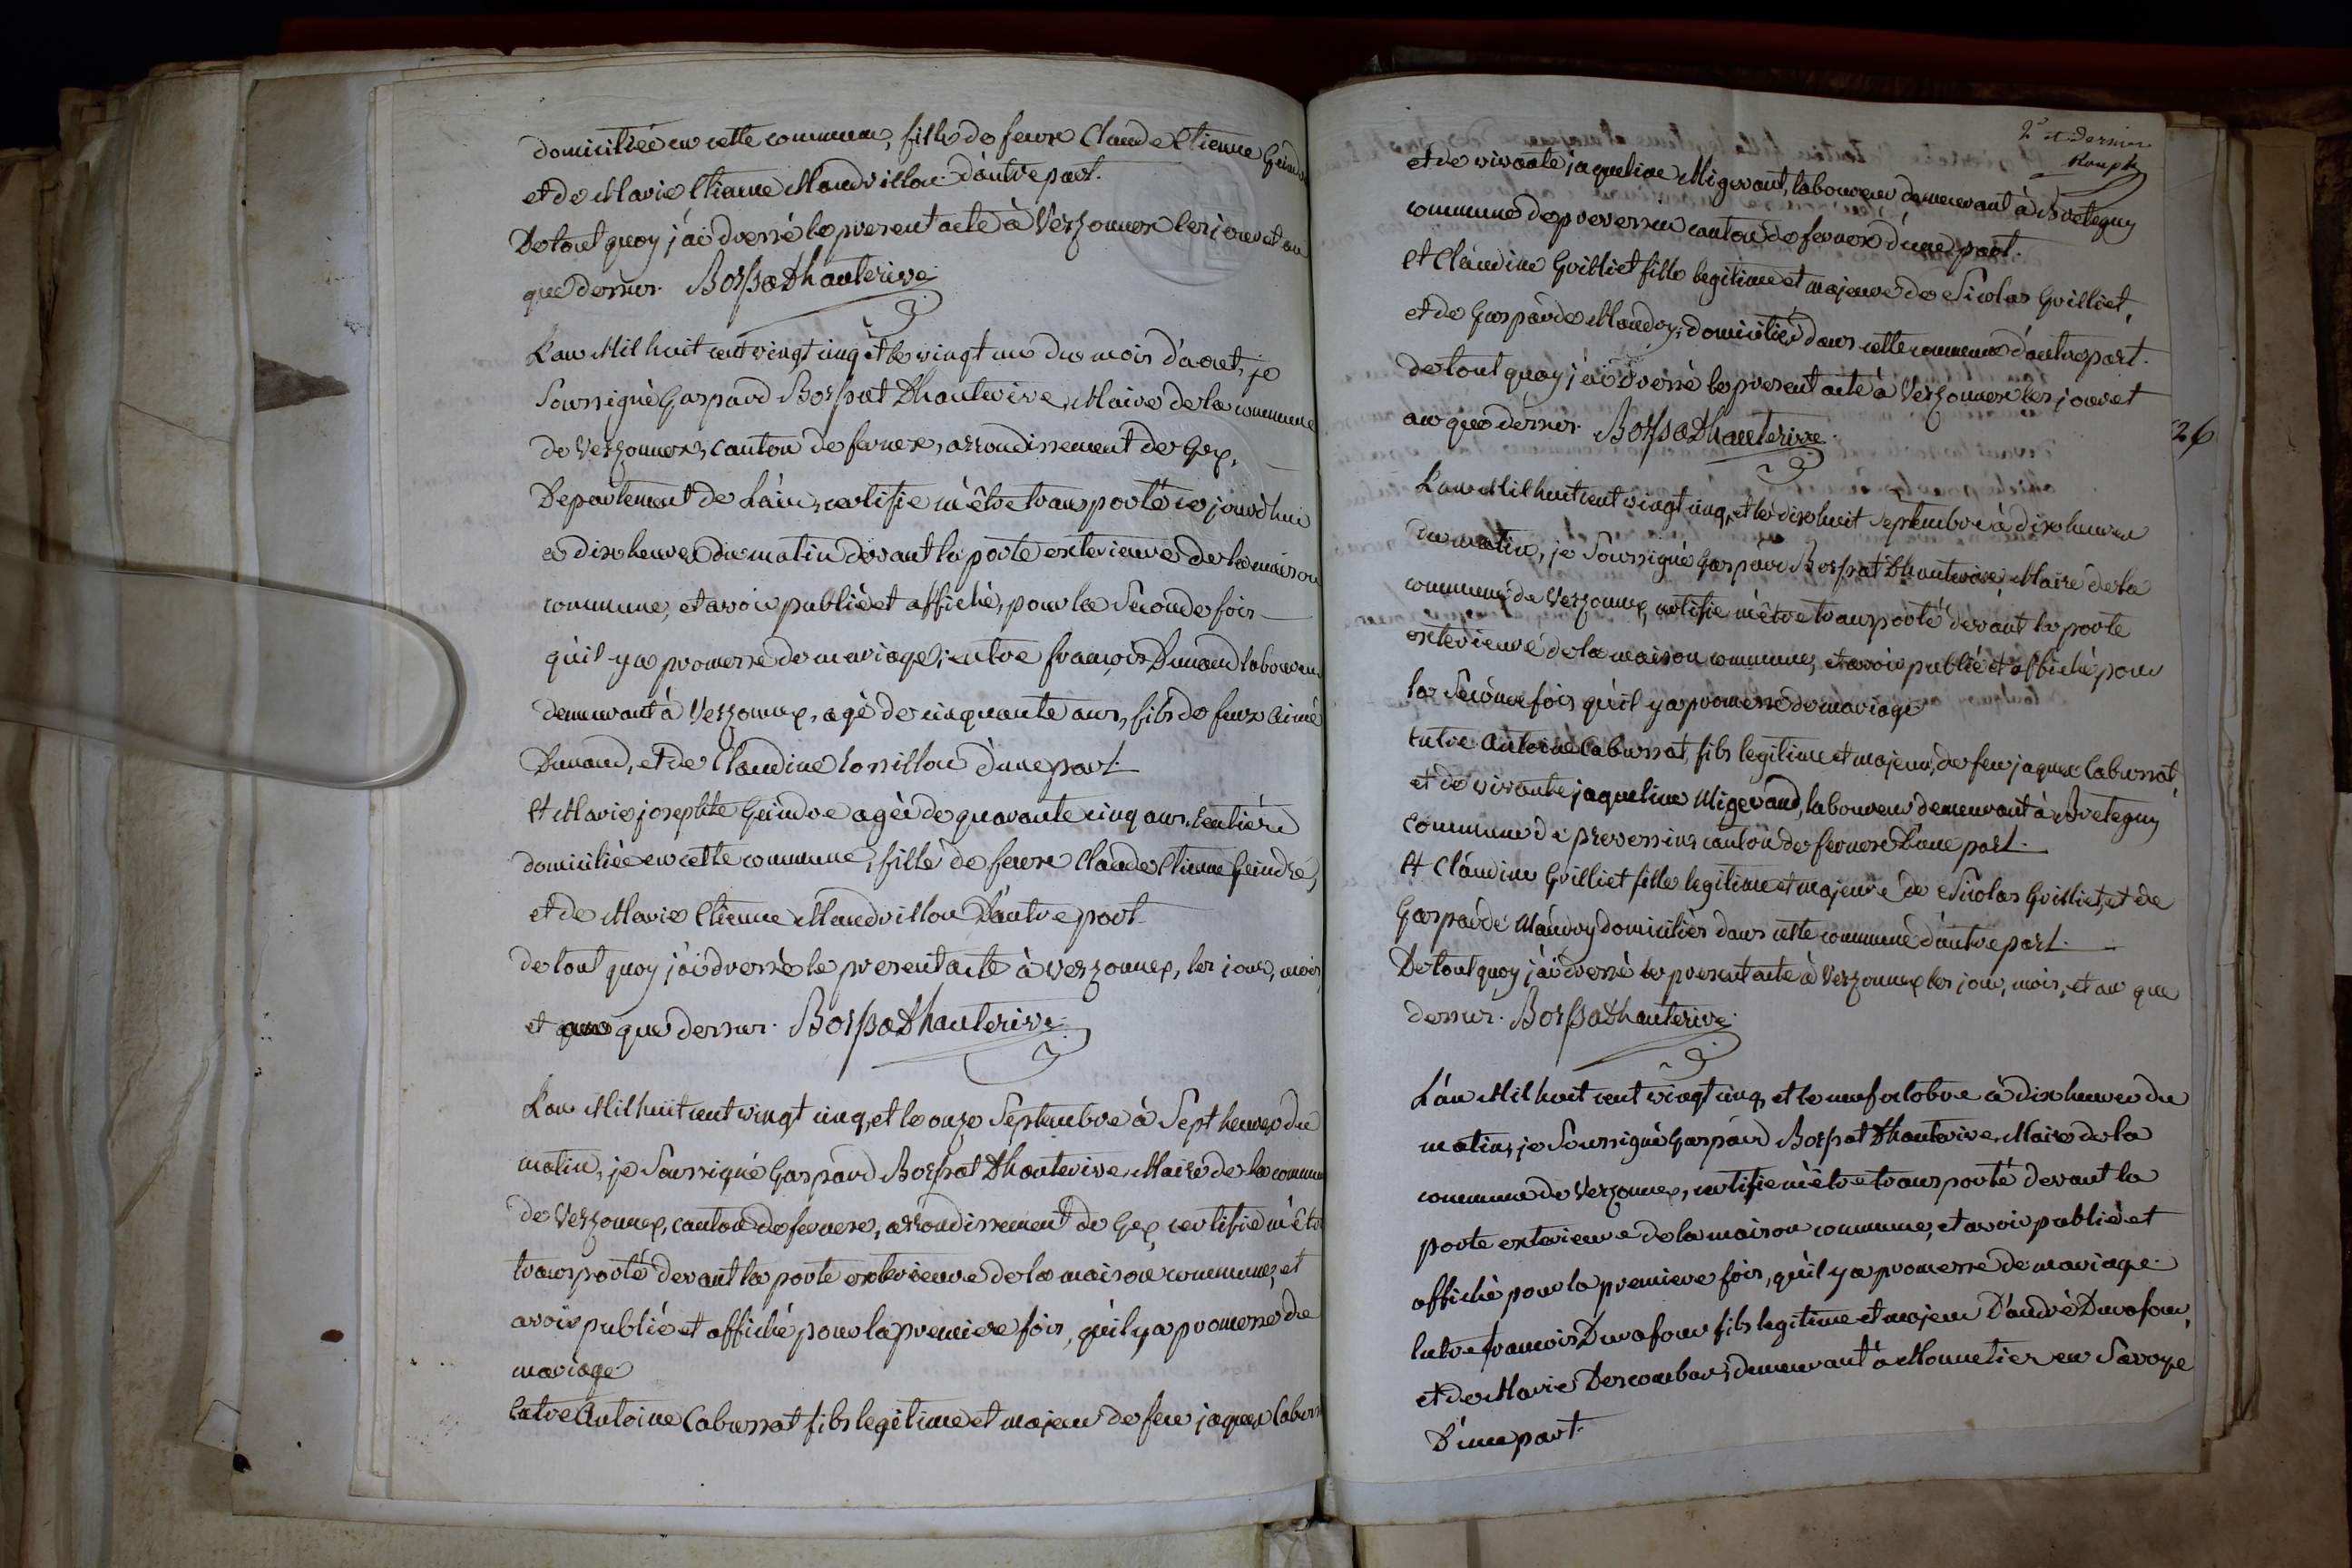 domiciliée en cette commune, fille de feux Claude Etienne Geindre
et de Marie Etienne Mandrillon d'autre part.
De tout quoy j'ai dressé le present acte à Verzonnex les jour et an
que dessus. Borssat Dhauterive
L'an Mil huit cent vingt cinq et le vingt un du mois d'aout, je
Soussigné Gaspard Borssat Dhauterive, Maire de la commune
de Verzonnex, canton de fernex, arrondissement de Gex,
Departement de L'ain, certifie m'être transporté ce jourd'hui
à dix heures du matin devant la porte exterieure de la maison
commune, et avoir publié et affiché, pour la Seconde fois
qu'il y a promesse de mariage, entre françois Dunand laboureur
demeurant à Verzonnex, agé de cinquante ans, fils de feux Aimé
Dunand, et de Claudine Lossillon d'une part.
Et Marie josephte Geindre agée de quarante cinq ans rentière
domiciliée en cette commune, fille de feux Claude Etienne Geindre,
et de Marie Etienne Mandrillon D'autre part.
de tout quoy j'ai dressé le present acte à Verzonnex, les jour, mois,
et an que dessus. Borssat Dhauterive
L'an Mil huit cent vingt cinq, et le onze Septembre à Sept heures du
matin, je Soussigné Gaspard Borssat Dhauterive, Maire de la commune
de Verzonnex, canton de fernex, arrondissement de Gex, certifie m'être
transporté devant la porte exterieure de la maison commune, et
avoir publié et affiché pour la premiere fois, qu'il y a promesse de
mariage
Entre Antoine Cabussat fils legitime et majeur de feu jaques Cabussat
2e et dernier
et de vivante jaqueline Migerant, laboureur demeurant à Bretegny
commune de prevessin canton de fernex d'une part.
et Claudine Guilliet fille legitime et majeure de Nicolas Guilliet,
et de Gasparde Mandoy, domiciliés dans cette commune d'autre part.
de tout quoy j'ai dressé le present acte à Verzonnex les jour et
an que dessus. Borssat Dhauterive
26
L'an Mil huit cent vingt cinq, et le dix huit Septembre à dix heures
du matin, je Soussigné Gaspard Borssat Dhauterive, Maire de la
commune de Verzonnex, certifie m'être transporté devant la porte
exterieure de la maison commune, et avoir publié et affiché pour
la Seconde fois qu'il y a promesse de mariage
Entre Antoine Cabussat, fils legitime et majeur, de feu jaques Cabussat,
et de vivante jaqueline Migerand, laboureur demeurant à Bretegny
Commune de prevessin, canton de fernex D'une part.
Et Claudine Guilliet fille legitime et majeure de Nicolas Guilliet, et de
Gasparde Mandoy domiciliés dans cette commune d'autre part.
De tout quoy j'ai dressé le present acte à Verzonnex les jour, mois, et an que
dessus. Borssat Dhauterive
L'an Mil huit cent vingt cinq, et le neuf octobre à dix heures du
matin, je Soussigné Gaspard Borssat Dhauterive, Maire de la
commune de Verzonnex, certifie m'être transporté devant la
porte exterieure de la maison commune, et avoir publié et
affiché pour la premiere fois, qu'il y a promesse de mariage
Entre françois Durafour fils legitime et majeur D'andré Durafour,
et de Marie Descombas, demeurant à Monnetier en Savoye
D'une part.